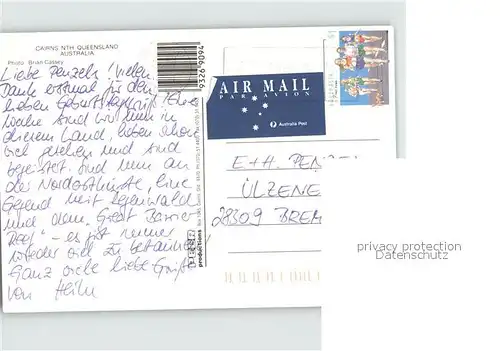 CAIRNS NTH QUEENSLAND
AUSTRALIA
Photo: Brian Cassey
9326 9094
Liebe Penzels! Vielen
Dank erstmal für den
lieben Geburtstagsgruß! Eine
Woche sind wir nun in
diesem Land, haben schon
viel gesehen und sind
begeistert. Sind nun an
der Nordostküste, eine
Gegend mit Regenwald
und dem "Great Barrier
Reef" - es ist immer
wieder viel zu bestaunen.
Ganz viele liebe Grüße
von
productions
AIR MAIL
PAR AVION
Australia Post
$1
AUSTRALIA
E+H. PENZEL
ÜLZENE
28309 BREM
privacy protection
Datenschutz